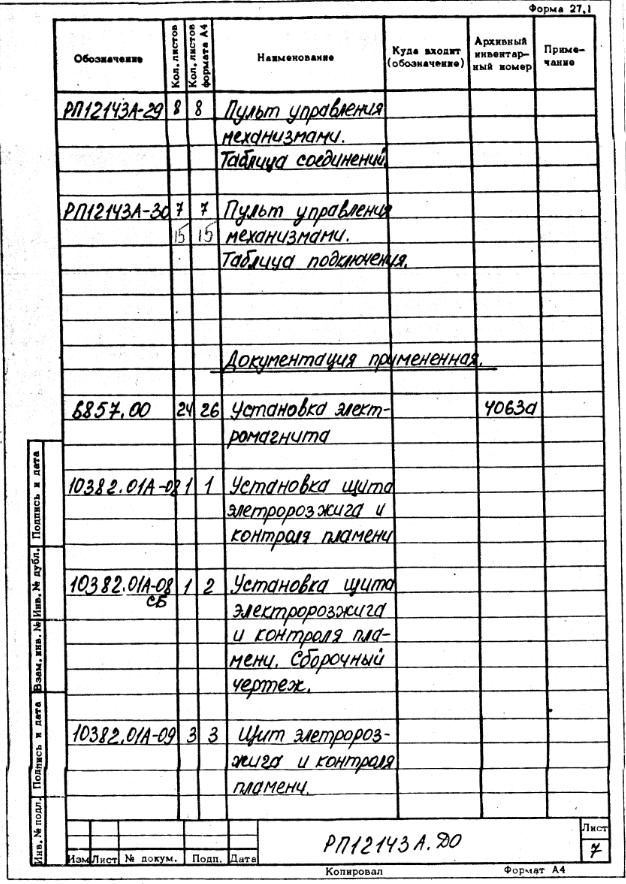 Форма 27,1
Обозначение Кол. листов Кол. листов формата А4 Наименование Куда входит (обозначение) Архивный инвентарный номер Примечание
РП12143А-29 8 8 Пульт управления
механизмами.
Таблица соединений
РП12143А-30 7 7 Пульт управления
15 15 механизмами.
Таблица подключения.
Документация примененная.
6857.00 24 26 Установка элект- 4063а
ромагнита
10382.01А-08 1 1 Установка щита
элетророзжига и
контроля пламени
10382.01А-08 1 2 Установка щита
СБ электророзжига
и контроля пла-
мени. Сборочный
чертеж.
10382.01А-09 3 3 Щит элетророз-
жига и контроля
пламени.
Инв. № подл. Подпись и дата Взам. инв. № Инв. № дубл. Подпись и дата
РП12143А.ДО
Лист
7
Изм Лист № докум. Подп. Дата
Копировал Формат А4